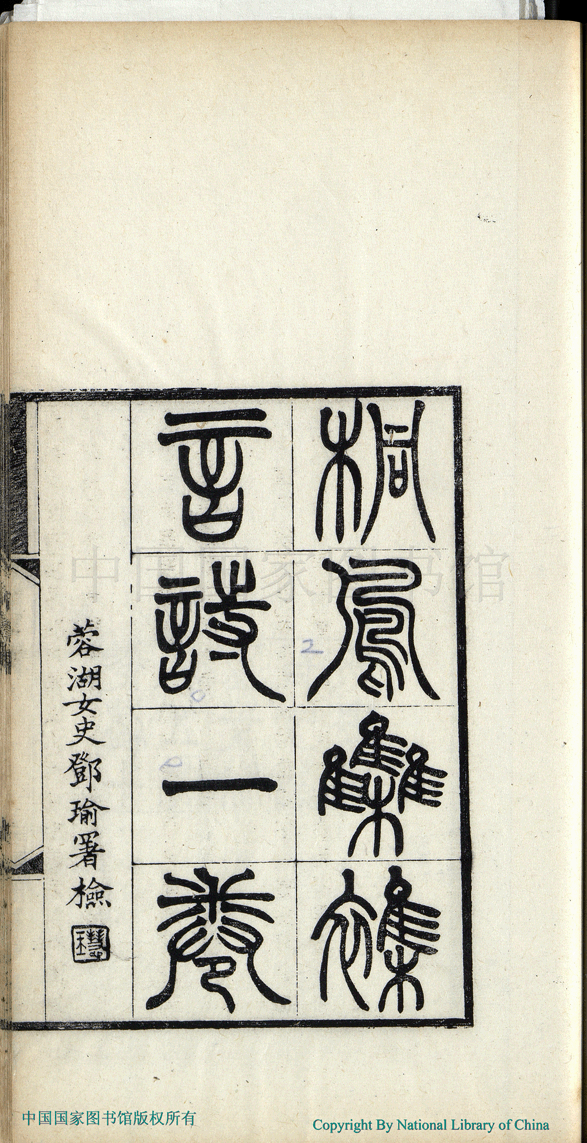 桐鳳集雜
言詩一卷
蓉湖女史鄧瑜署檢
中国国家图书馆
2
中国国家图书馆版权所有
Copyright By National Library of China